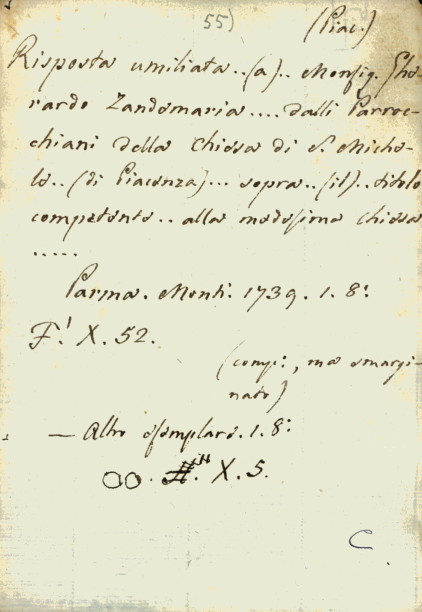 55)
(Piac.)
Risposta umiliata..(a).. Monsig. Ghe-
rardo Zandemaria.... dalli Parroc-
chiani della Chiesa di S. Miche-
le..(di Piacenza)... sopra..(il)..titolo
competente.. alla medesima Chiesa
.....
Parma. Monti. 1739. 1. 8:
F.' X. 52.
(comp:, ma smargi-
nato)
— Altro esemplare. 1. 8:
X. 5.
C